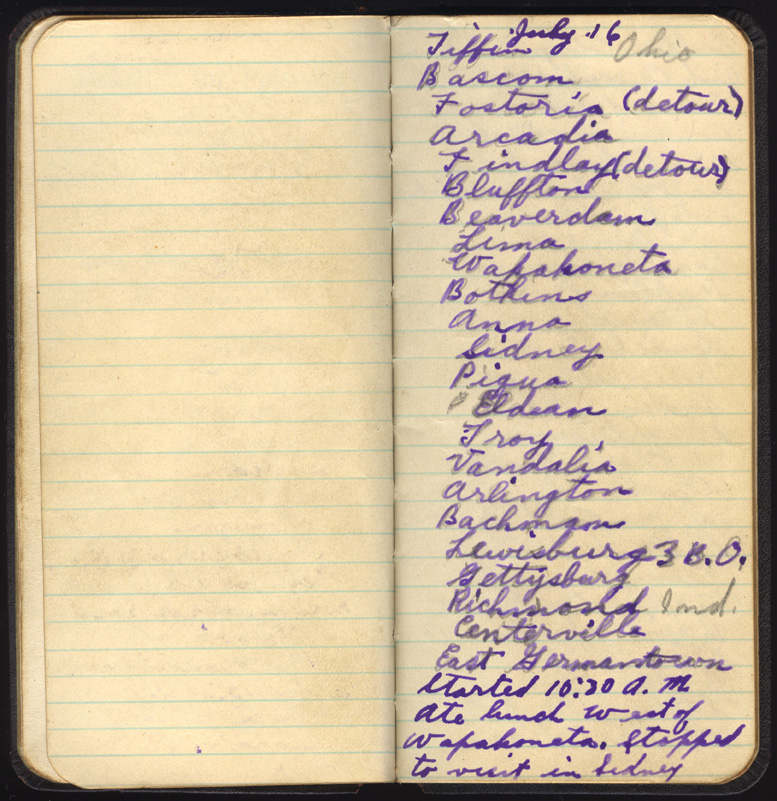 July 16
Tiffin Ohio
Bascom
Fostoria (detour)
Arcadia
Findlay (detour)
Bluffton
Beaverdam
Lima
Wapakoneta
Botkins
Anna
Sidney
Piqua
Eldean
Troy
Vandalia
Arlington
Bachman
Lewisburg 3 B.O.
Gettysburg
Richmond Ind.
Centerville
East Germantown
Started 10:30 A. M
Ate lunch West of
Wapakoneta. Stopped
to visit in Sidney